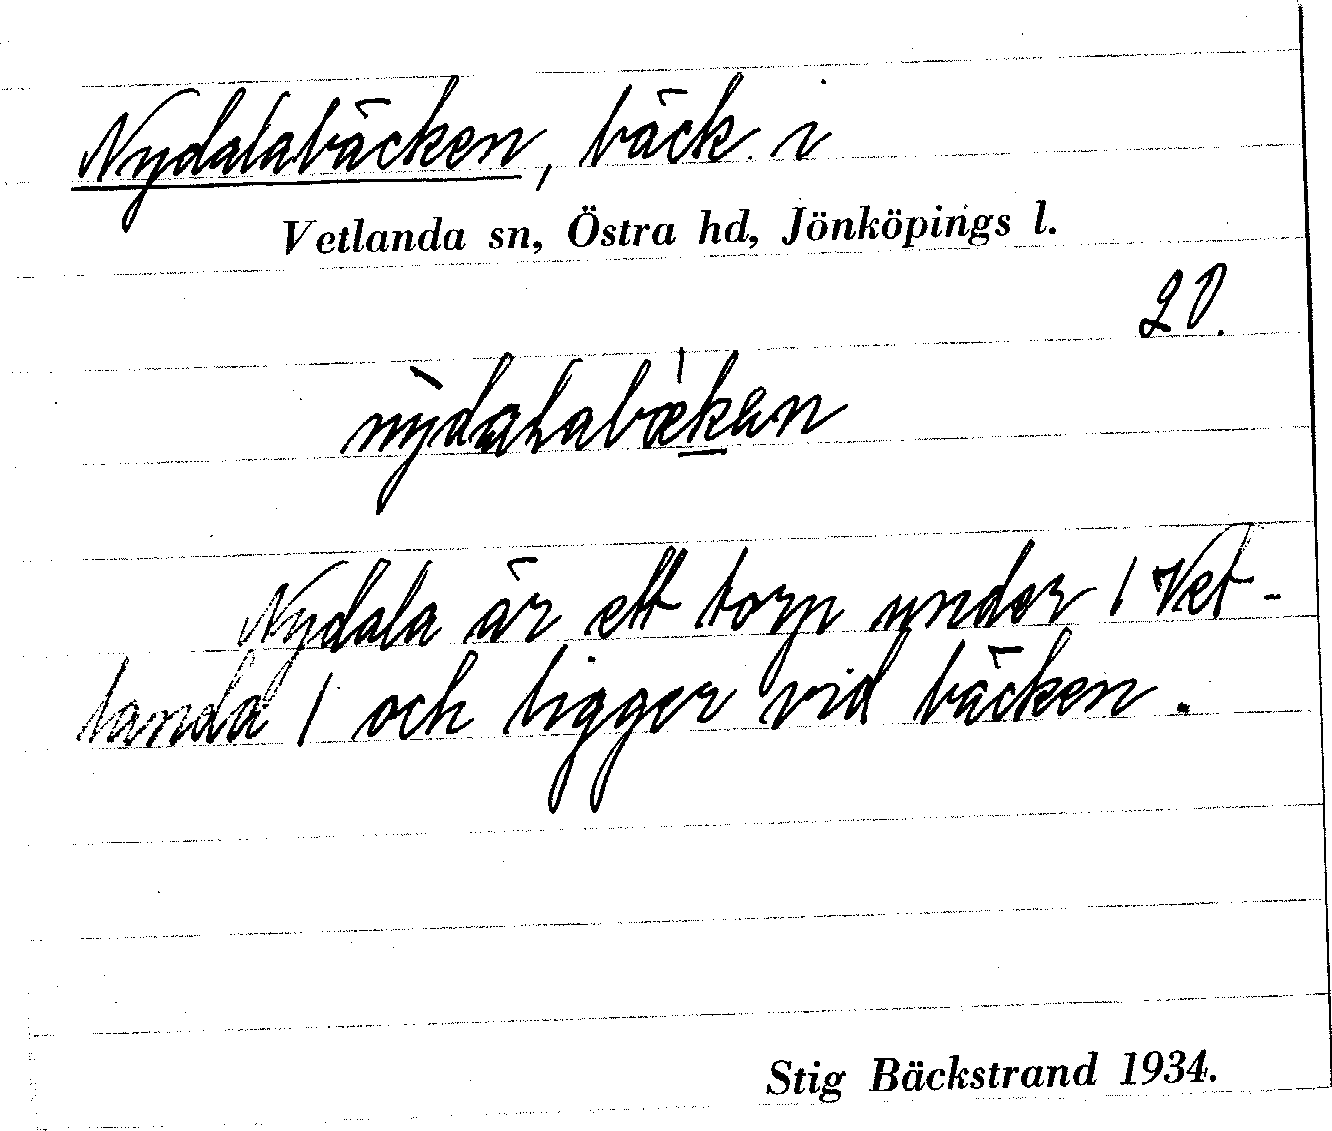 Nydalabäcken, bäck i
Vetlanda sn, Östra hd, Jönköpings l.
20.
nỳdalabækən
Nydala är ett torp under / Vet-
landa / och ligger vid bäcken.
Stig Bäckstrand 1934.